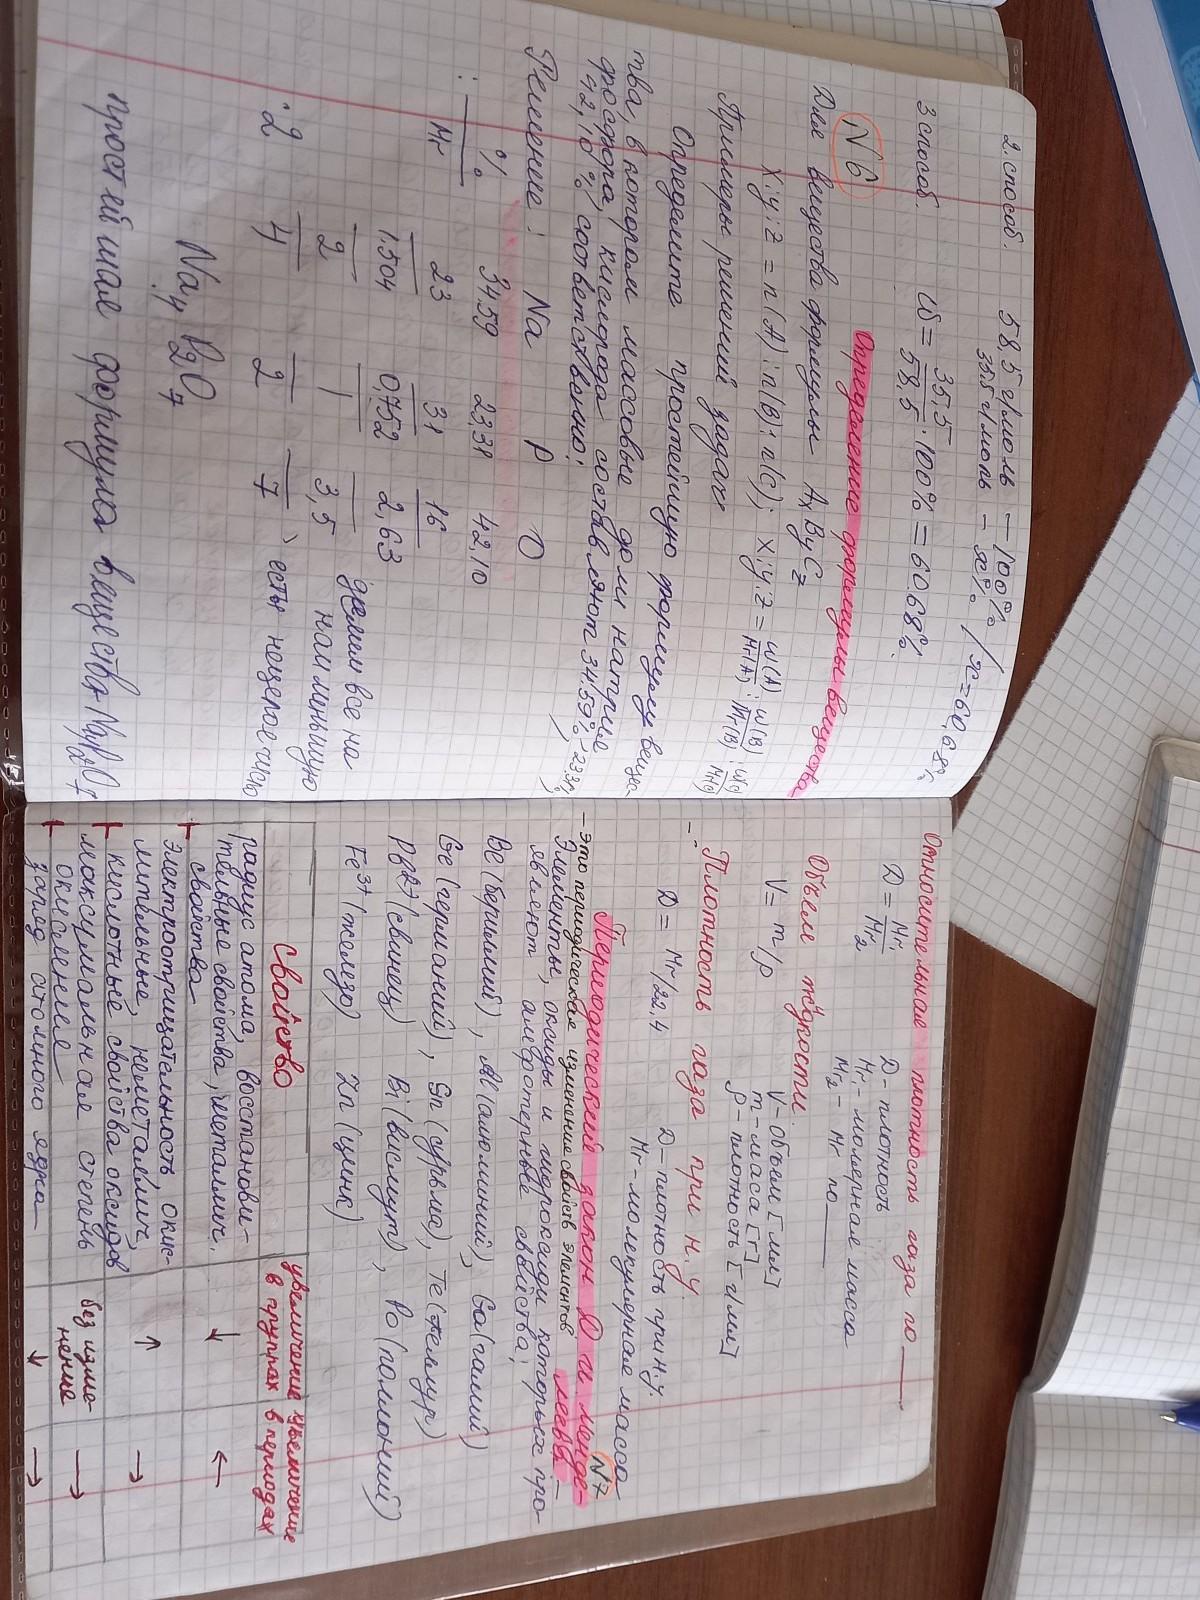 2. способ. 58,5 г/моль — 100% / x = 60,68%
35,5 г/моль — x%
3 способ. W = 35,5/58,5 · 100% = 60.68%.
Определение формулы вещества
N6
Для вещества формулы AxByCz
x:y:z = n(A) : n(B) : n(C); x:y:z = W(A)/Mr(A) : W(B)/Mr(B) : W(C)/Mr(C)
Примеры решений задач
Определите простейшую формулу вещес-
тва, в котором массовые доли натрия
фосфора, кислорода составляют 34.59%, 23.31%,
42,10% соответственно;
Решение: Na P O
% 34.59 23,31 42,10
: Mr 23 31 16
1.504 0,752 2,63 делим все на
2 1 3,5 наименьшую
·2 4 2 7 , есть нецелое число
Na4 P2O7
простейшая формула вещества Na4P2O7
Относительная плотность газа по ___
D = Mr1/Mr2 D - плотность
Mr - молярная масса
Mr2 - Mr по ___
Объём жидкости.
V = m/ρ V - объём [мл]
m - масса [г]
ρ - плотность [г/мл]
Плотность газа при н.у.
D = Mr/22.4 D - плотность при н.у.
Mr - молекулярная масса
N7
Периодический закон Д. И. Менде-
леева -
- это периодическая изменение свойств элементов
Элементы, оксиды и гидроксиды которых про
являют амфотерные свойства;
Be (бериллий), Al (алюминий), Ga (галий)
Ge (германий), Sn (сурьма), Te (теллур)
Pb2+ (свинец) Bi (висмут), Po (полоний)
Fe3+ (железо) Zn (цинк)
свойство увеличение в группах увеличение в периодах
радиус атома, восстанови-
тельные свойства, металлич. ↓ ←
свойства
электроотрицательность, окис-
лительные, неметаллич, ↑ →
кислотные свойства оксидов
максимальная степень без изме-
окисления нение →
заряд атомного ядра ↓ →